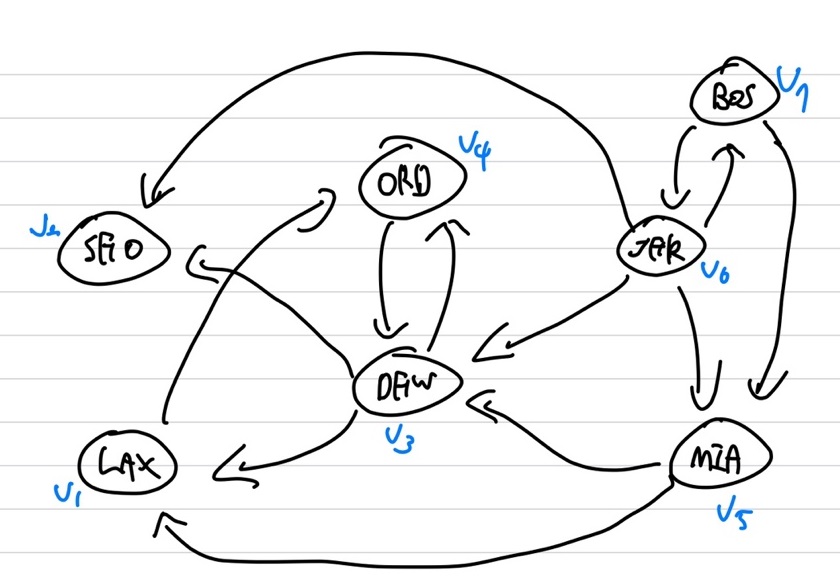 BOS
V7
ORD
V4
SFO
JFK
V6
DFW
V3
LAX
V1
MIA
V5